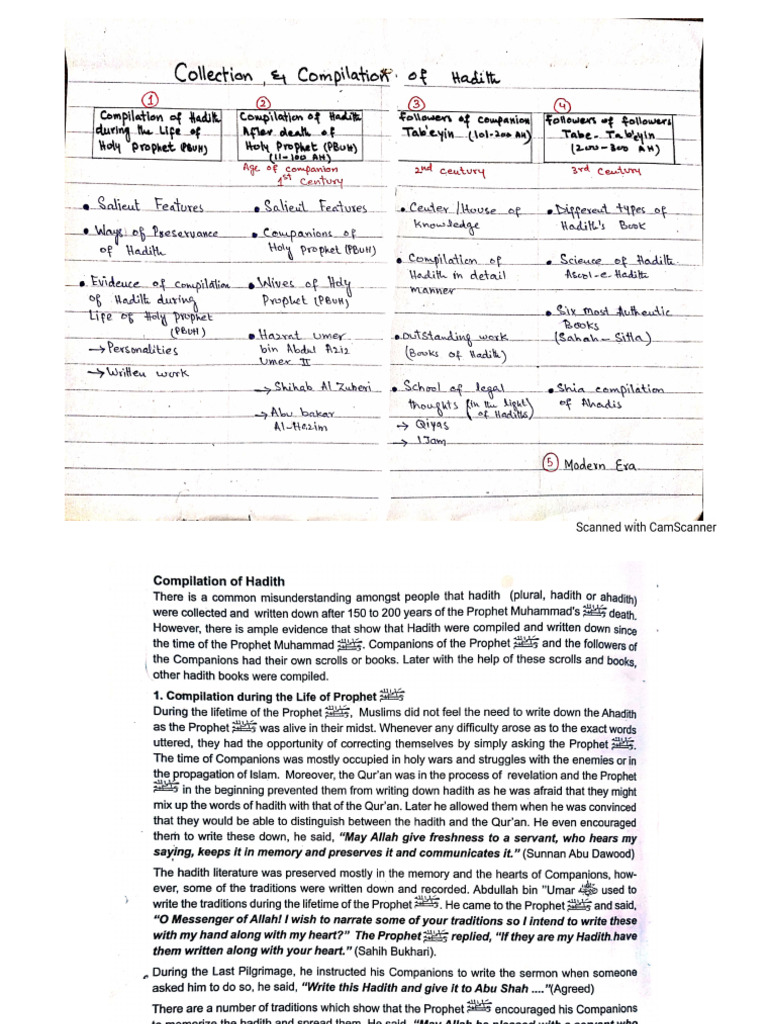 Collection & Compilation of Hadith
①
Compilation of Hadith
during the Life of
Holy Prophet (PBUH)
②
Compilation of Hadith
After death of
Holy Prophet (PBUH)
(11-100 AH)
Age of companion
1st Century
③
followers of companion
Tab'eyin (101-200 AH)
2nd century
④
followers of followers
Tabe-Tab'eyin
(200-300 AH)
3rd Century
• Salient Features
• Ways of Preservance
of Hadith
• Evidence of compilation
of Hadith during
Life of Holy Prophet
(PBUH)
→ Personalities
→ Written work
• Salient Features
• Companions of
Holy Prophet (PBUH)
• Wives of Holy
Prophet (PBUH)
• Hazrat Umer
bin Abdul Aziz
Umer II
→ Shihab Al Zuheri
→ Abu bakar
Al-Hazim
• Center/House of
Knowledge
• Compilation of
Hadith in detail
manner
• Outstanding work
(Books of Hadith)
• School of legal
thoughts (in the light
of Hadiths)
→ Qiyas
→ IJam
• Different types of
Hadith's Book
• Science of Hadith
Ascol-e-Hadith
• Six most Authentic
Books
(Sahah-Sitta)
• Shia compilation
of Ahadis
⑤ Modern Era
Scanned with CamScanner
Compilation of Hadith
There is a common misunderstanding amongst people that hadith (plural, hadith or ahadith)
were collected and written down after 150 to 200 years of the Prophet Muhammad's ﷺ death.
However, there is ample evidence that show that Hadith were compiled and written down since
the time of the Prophet Muhammad ﷺ. Companions of the Prophet ﷺ and the followers of
the Companions had their own scrolls or books. Later with the help of these scrolls and books,
other hadith books were compiled.
1. Compilation during the Life of Prophet ﷺ
During the lifetime of the Prophet ﷺ, Muslims did not feel the need to write down the Ahadith
as the Prophet ﷺ was alive in their midst. Whenever any difficulty arose as to the exact words
uttered, they had the opportunity of correcting themselves by simply asking the Prophet ﷺ.
The time of Companions was mostly occupied in holy wars and struggles with the enemies or in
the propagation of Islam. Moreover, the Qur'an was in the process of revelation and the Prophet
ﷺ in the beginning prevented them from writing down hadith as he was afraid that they might
mix up the words of hadith with that of the Qur'an. Later he allowed them when he was convinced
that they would be able to distinguish between the hadith and the Qur'an. He even encouraged
them to write these down, he said, "May Allah give freshness to a servant, who hears my
saying, keeps it in memory and preserves it and communicates it." (Sunnan Abu Dawood)
The hadith literature was preserved mostly in the memory and the hearts of Companions, how-
ever, some of the traditions were written down and recorded. Abdullah bin "Umar used to
write the traditions during the lifetime of the Prophet ﷺ. He came to the Prophet ﷺ and said,
"O Messenger of Allah! I wish to narrate some of your traditions so I intend to write these
with my hand along with my heart?" The Prophet ﷺ replied, "If they are my Hadith have
them written along with your heart." (Sahih Bukhari).
During the Last Pilgrimage, he instructed his Companions to write the sermon when someone
asked him to do so, he said, "Write this Hadith and give it to Abu Shah ...."(Agreed)
There are a number of traditions which show that the Prophet ﷺ encouraged his Companions
to memorize the hadith and spread them. He said, "May Allah be pleased with a servant who